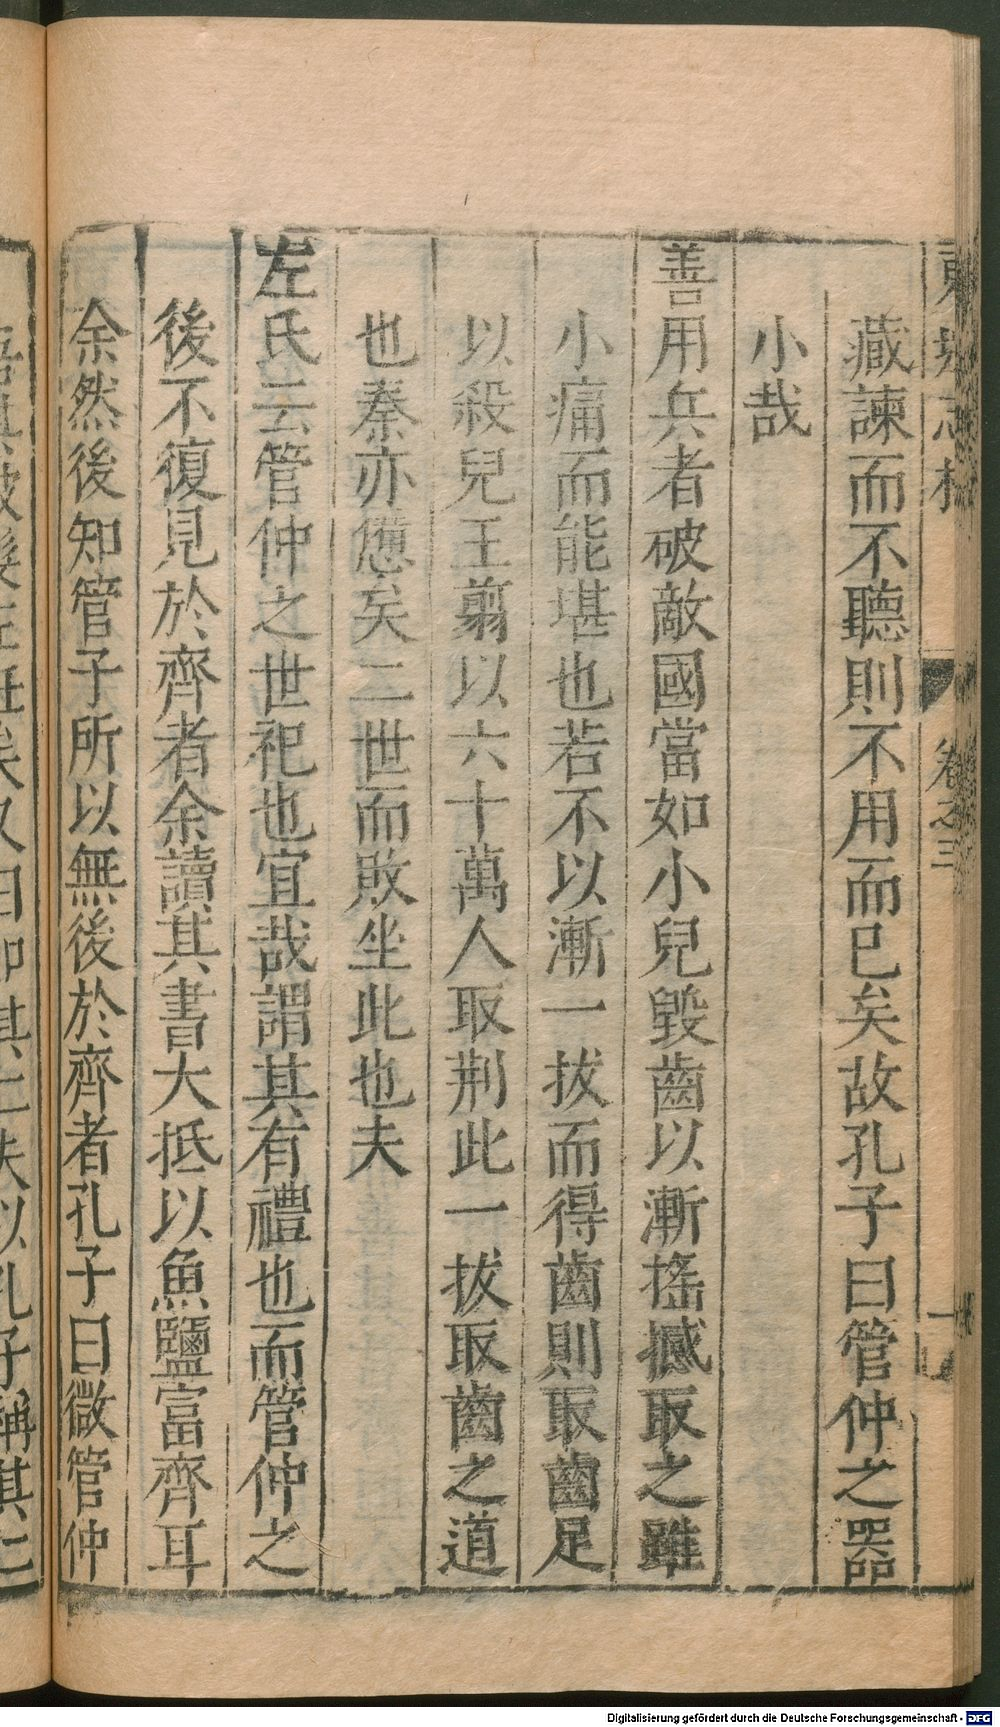 藏諫而不聽則不用而已矣故孔子曰管仲之器
小哉
善用兵者破敵國當如小兒毀齒以漸搖撼取之雖
小痛而能堪也若不以漸一拔而得齒則取齒足
以殺兒王翦以六十萬人取荆此一拔取齒之道
也秦亦憊矣二世而敗坐此也夫
左氏云管仲之世祀也宜哉謂其有禮也而管仲之
後不復見於齊者余讀其書大抵以魚鹽富齊耳
余然後知管子所以無後於齊者孔子曰微管仲
卷之三
Digitalisierung gefördert durch die Deutsche Forschungsgemeinschaft - DFG